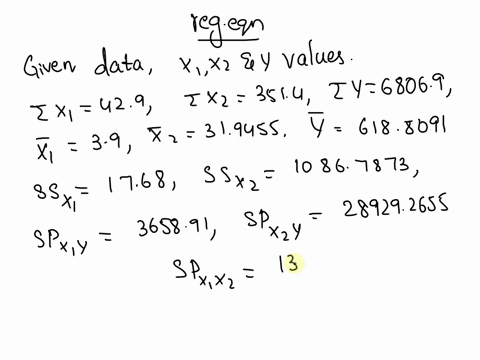 reg.eqn
Given data, x₁, x₂ & y values.
Σx₁ = 42.9, Σx₂ = 351.4, ΣY = 6806.9,
X̄₁ = 3.9, X̄₂ = 31.9455, Ȳ = 618.8091
SS_X₁ = 17.68, SS_X₂ = 1086.7873,
SP_X₁Y = 3658.91, SP_X₂Y = 28929.2655
SP_X₁X₂ = 13